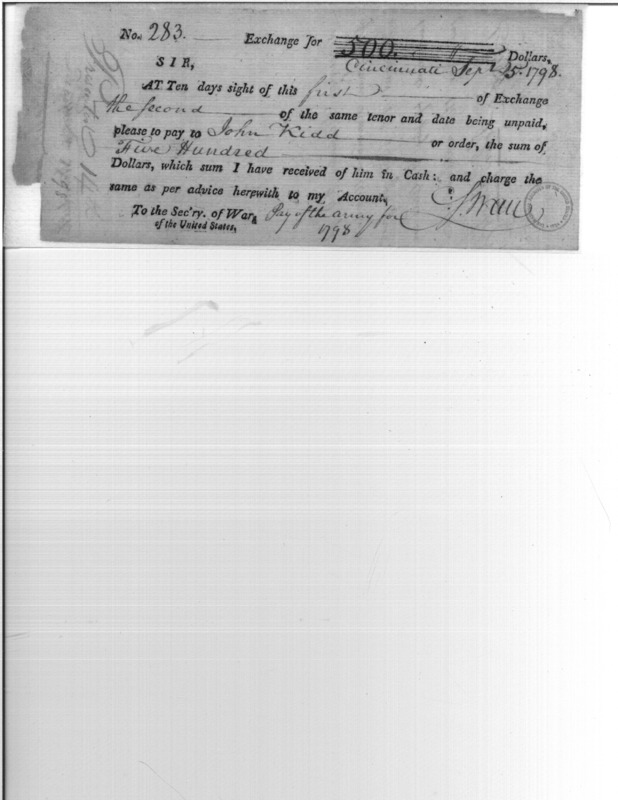 No. 283. Exchange for 500. Dollars,
Cincinnati Sept 25. 1798.
SIR,
AT Ten days sight of this first of Exchange
the second of the same tenor and date being unpaid,
please to pay to John Kidd or order, the sum of
Five Hundred
Dollars, which sum I have received of him in Cash: and charge the
same as per advice herewith to my Account,
To the Sec'ry. of War, Pay of the army for
of the United States, 1798
C. Swan